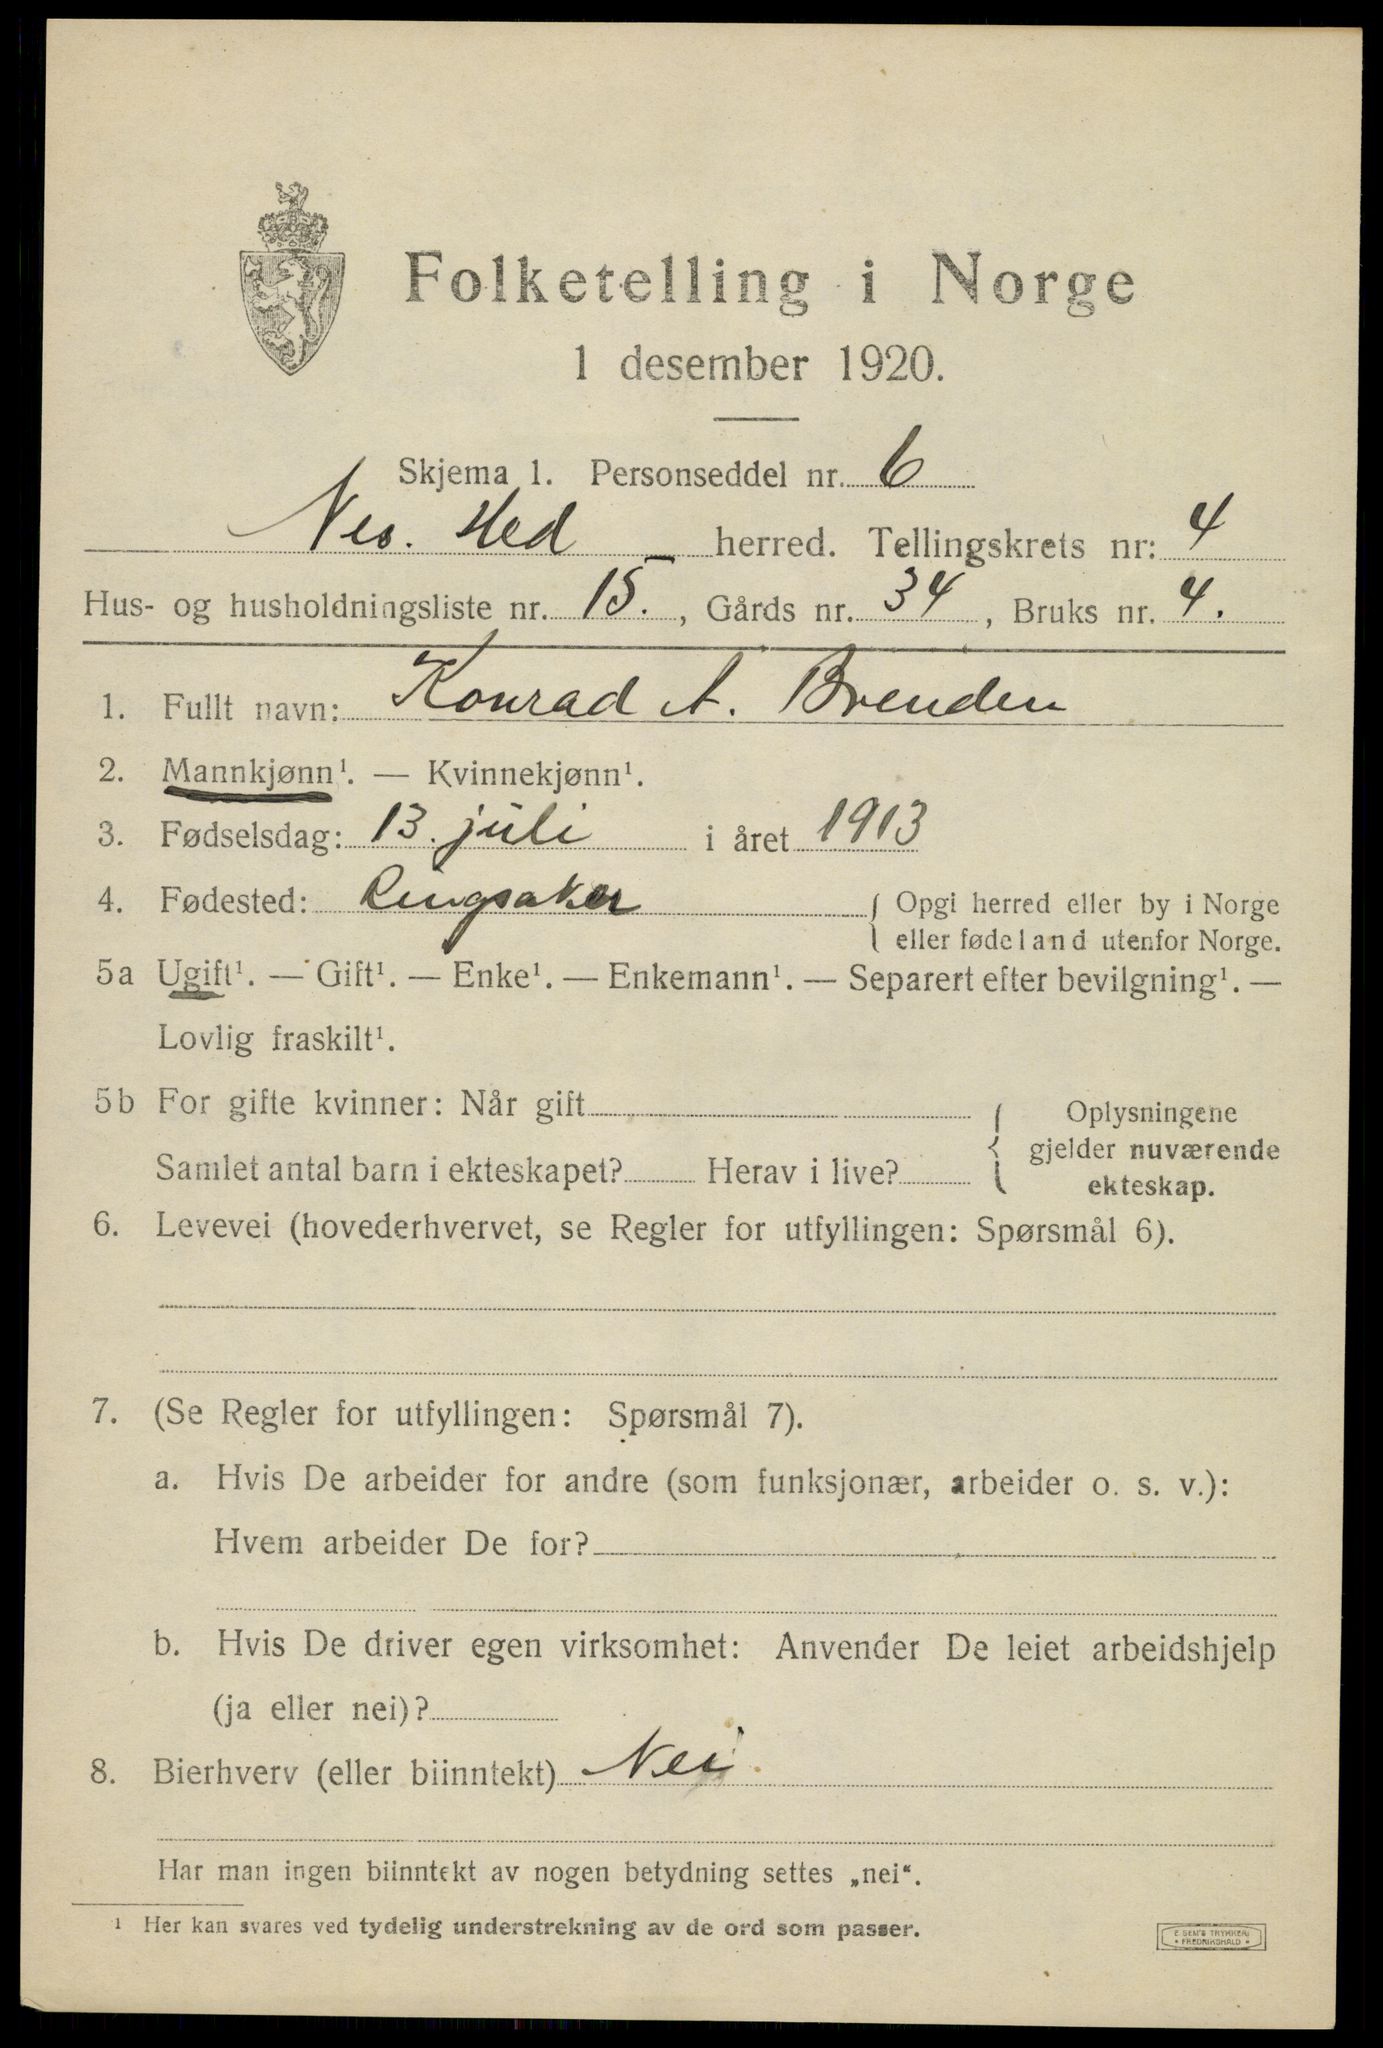 Folketelling i Norge
1 desember 1920.
Skjema 1. Personseddel nr. 6
Nes. Hed herred. Tellingskrets nr: 4
Hus- og husholdningsliste nr. 15. , Gårds nr. 34 , Bruks nr. 4.
1. Fullt navn: Konrad A. Brenden
2. Mannkjønn¹. — Kvinnekjønn¹.
3. Fødselsdag: 13. juli i året 1913
4. Fødested: Ringsaker { Opgi herred eller by i Norge
eller fødeland utenfor Norge.
5a Ugift¹. — Gift¹. — Enke¹. — Enkemann¹. — Separert efter bevilgning¹. —
Lovlig fraskilt¹.
5b For gifte kvinner: Når gift
Samlet antal barn i ekteskapet? Herav i live?
{ Oplysningene
gjelder nuværende
ekteskap.
6. Levevei (hovederhvervet, se Regler for utfyllingen: Spørsmål 6).
7. (Se Regler for utfyllingen: Spørsmål 7).
a. Hvis De arbeider for andre (som funksjonær, arbeider o. s. v.):
Hvem arbeider De for?
b. Hvis De driver egen virksomhet: Anvender De leiet arbeidshjelp
(ja eller nei)?
8. Bierhverv (eller biinntekt) Nei
Har man ingen biinntekt av nogen betydning settes „nei“.
¹ Her kan svares ved tydelig understrekning av de ord som passer.
E SEM'S TRYKKERI
• FREDRIKSHALD •